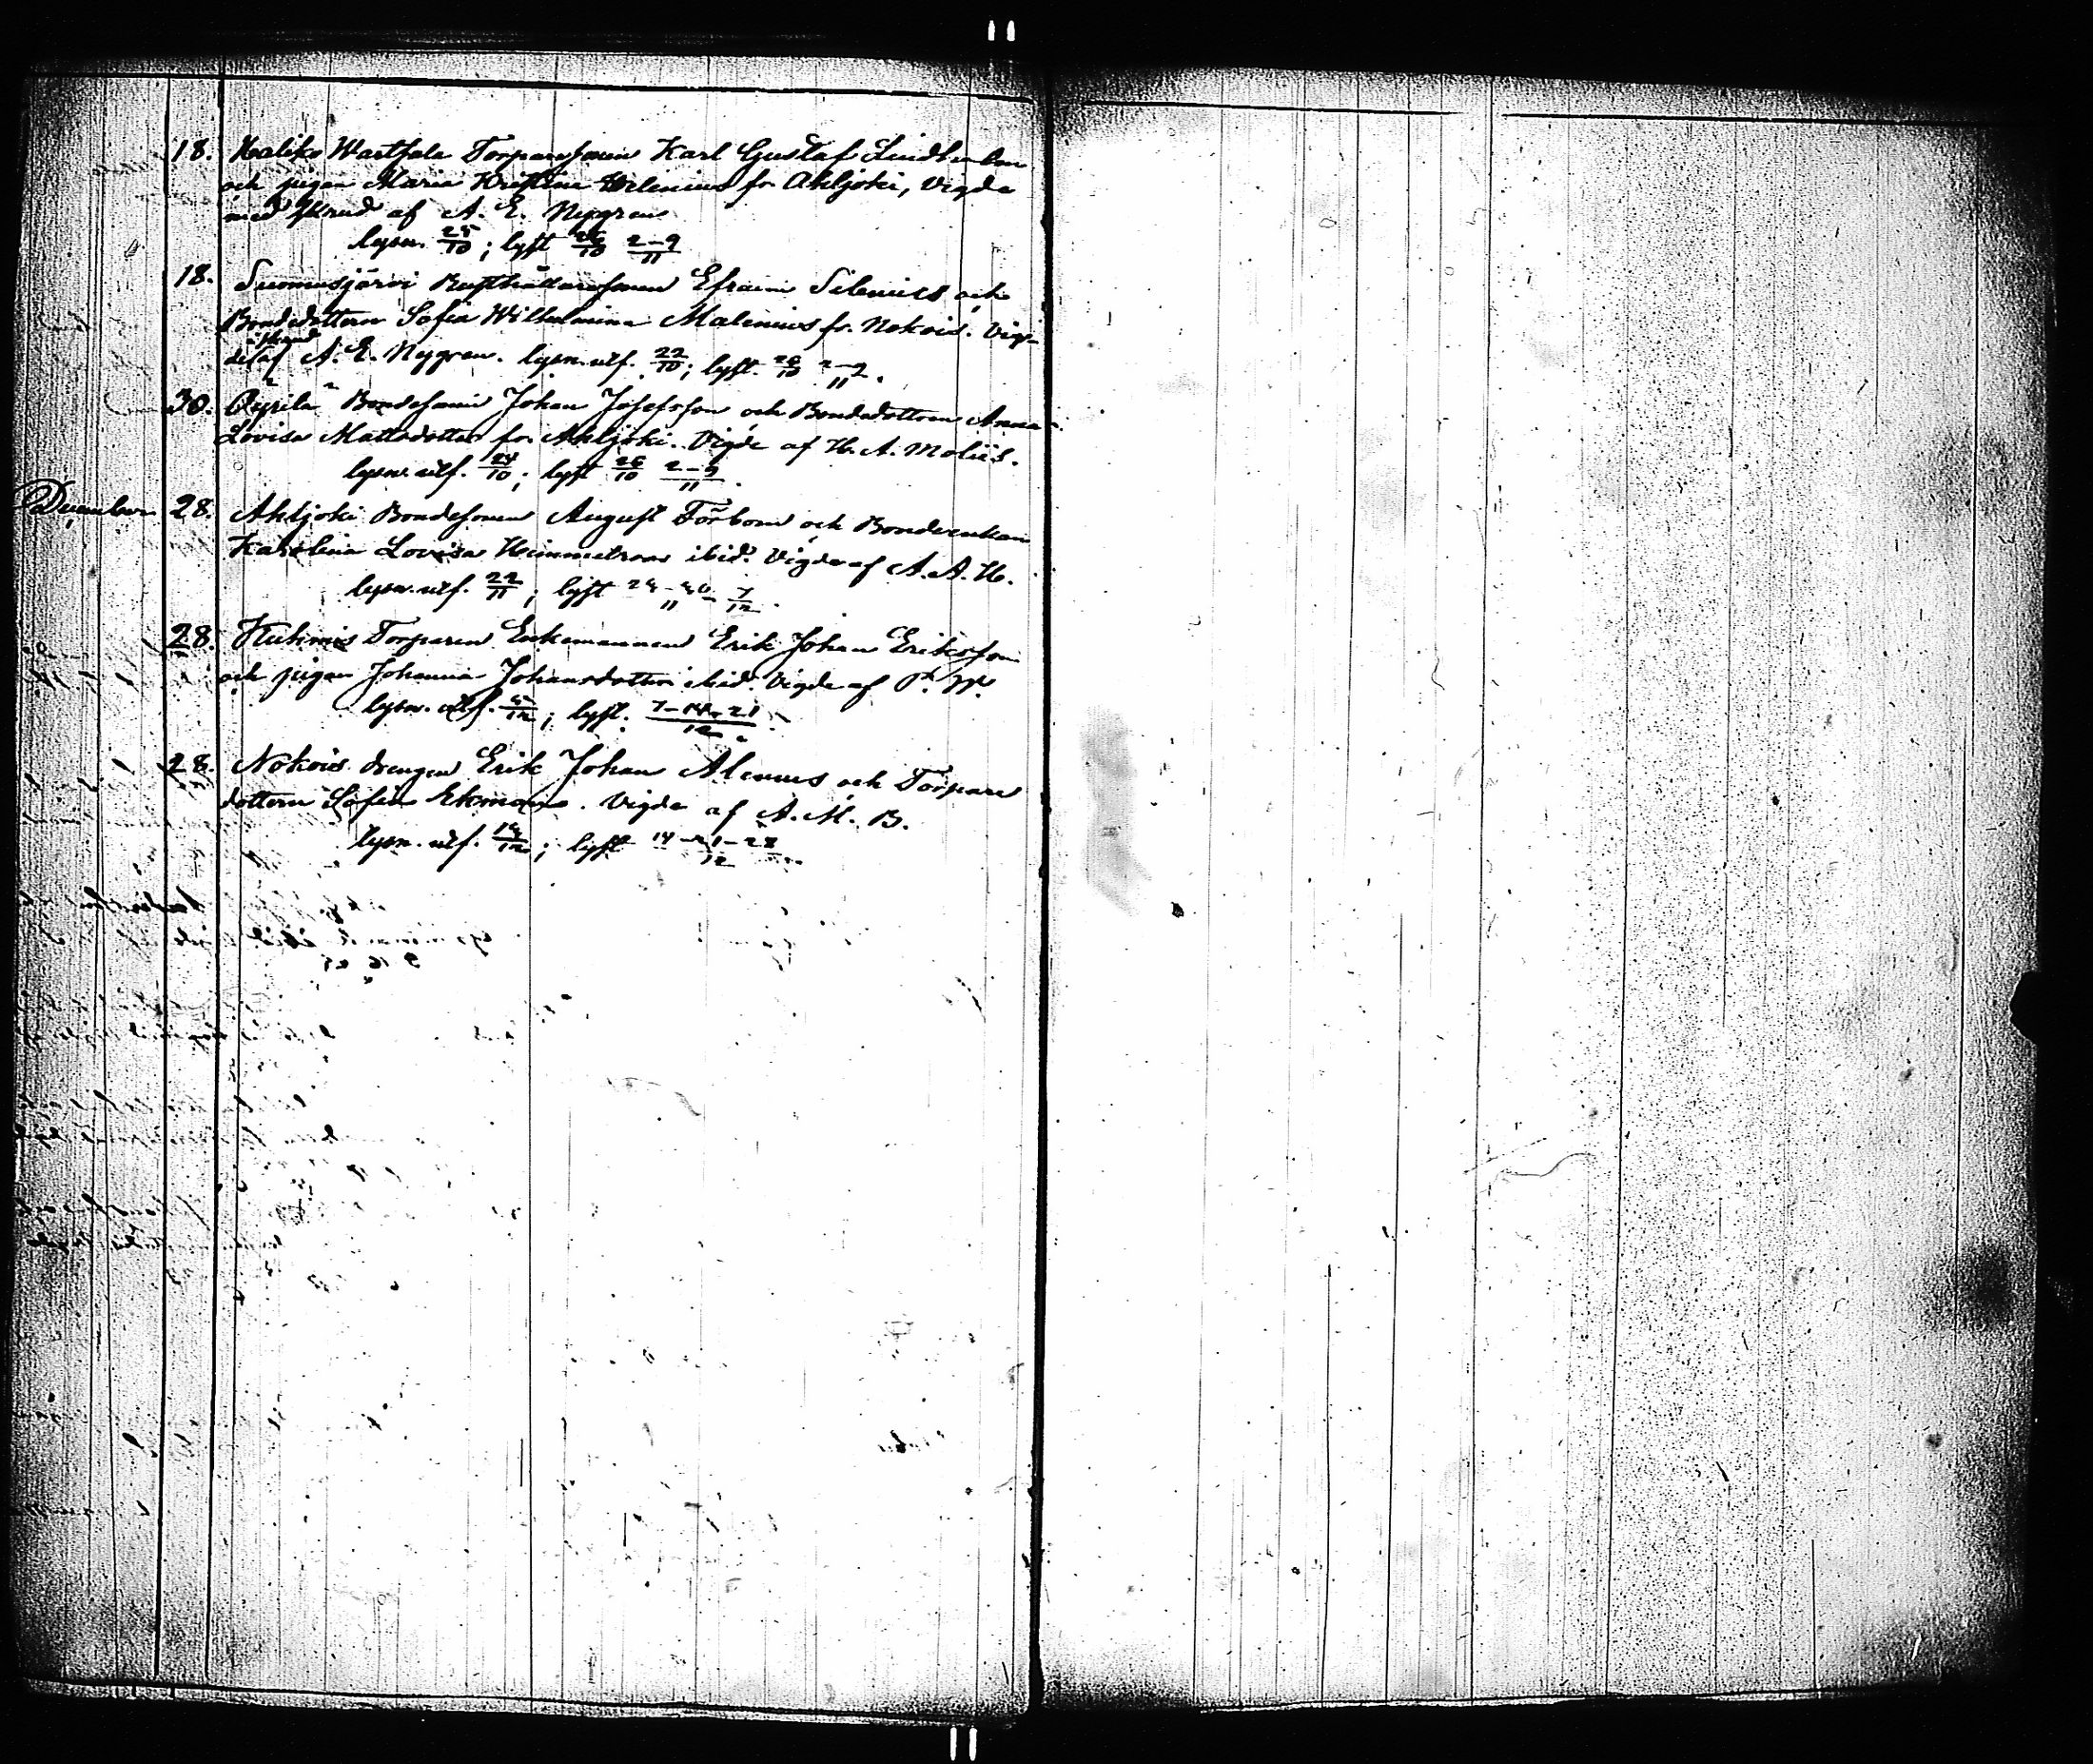 18. Haliko Wartsala Torparesonen Karl Gustaf
och pigan Maria Kristina Helenius fr. Ahljoki, Vigde
med skrud af A. E. Nygren
lysn. 25/10; lyft 26/10 2-9/11
18. Suomusjärvi Rusthållaresonen Efraim Silenius och
Bondedottern Sofia Wilhelmina Malenius fr. Nokois. Vig-
de af A. E. Nygren. lysn. utf. 22/10; lyft. 26/10 2-9/11.
30. Bondesonen Johan Josefsson och Bondedottren Anna
Lovisa Mattsdotter fr. Ahljoki. Vigde af H. A. Moliis.
lysn. utf. 24/10; lyft 26/10 2-9/11.
December 28. Ahljoki Bondesonen August Förbom och Bondeenkan
Karolina Lovisa ibid. Vigde af A. A. H.
lysn. utf. 22/11; lyft 7/12.
28. Torparen Enkemannen Erik Johan Eriksson
och pigan Johanna Johansdotter ibid. Vigde af
lysn. utf. lyft. 7-14-21/12.
28. Nokois drengen Erik Johan Alenius och Torpare
dottern Sofia Ekman. Vigde af A. M. B.
lysn. utf. lyft 14-21-28/12.